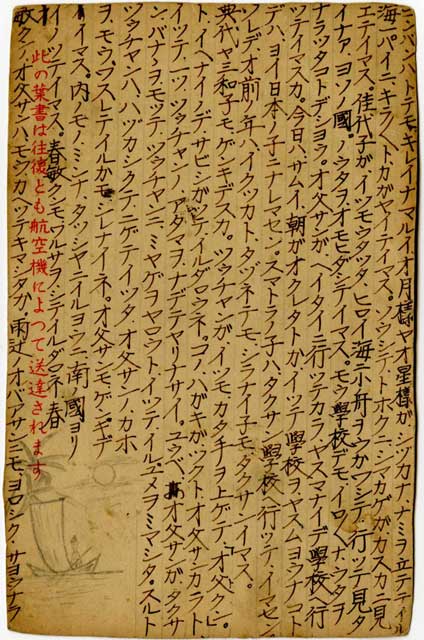 コンバンハトテモキレイナマルイオ月様ヤオ星様ガシヅカナナミヲ立テテイル
海一パイニキラ〱トカガヤイテイマス。ソウシテトホクニシマカゲガカスカニ見
エテイマス。佳代子ガイツモウタツタヒロイ海ニ小舟ヲウカヲシテ行ツテ見タ
イナアヨソノ國ノウタヲオモヒダシテイマス。モウ學校デモイロ〱ナウタヲ
ナラツタコトデシヨウ。オ父サンガヘイタイニ行ツテカラヤスマナイデ學校ヘ行
ツテイマスカ。今日ハサムイ朝ガオクレタトカイツテ學校ヲヤスムヨウナコト
デハヨイ日本ノ子ニナレマセン。スマトラノ子ハタクサン學校ヘ行ツテイマセン
ソレデオ前ノ年ハイクツカトタヅネテモシラナイ子モタクサンイマス。
典代ヤ三和子モゲンキデスカ。ツウチャンガイツモカタチヲ上ゲテ「オ父クン」
トイヘナイノデサビシガツテイルダロウネ。コノハガキガツクトオ父サンカラト
イツテツウチャンノアタマヲナデテヤリナサイ。ユウベオ父サンガタクサ
ンバナナヲモツテツウチャンニミヤゲヲヤロウトイツテイルユメヲミマシタ。スルト
ツウチャンハハヅカシクテニゲテイツタオ父サンノカホ
ヲモウワスレテイルカモシレナイネ。オ父サンモゲンキデ
イマス。内ノモノミンナタツシャニイルヨウニ南國ヨリ
イノツテイマス。春敏クンモワルサヲシテイルダロネ 春
敏クンオ父サンハモウカヘツテキマシタカ オバアサンニモヨロシク サヨウナラ
此の葉書は往復とも航空機によつて送達されます